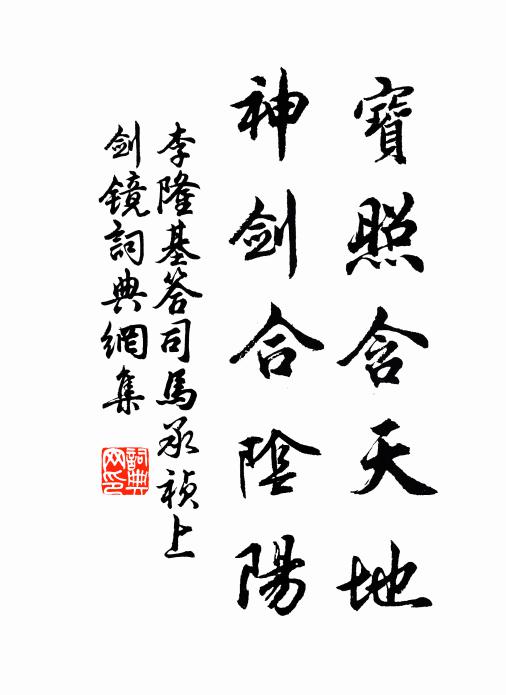 寶照含天地
神劍合陰陽
李隆基答司馬承禎上
劍鏡詞典網集
詞典網印